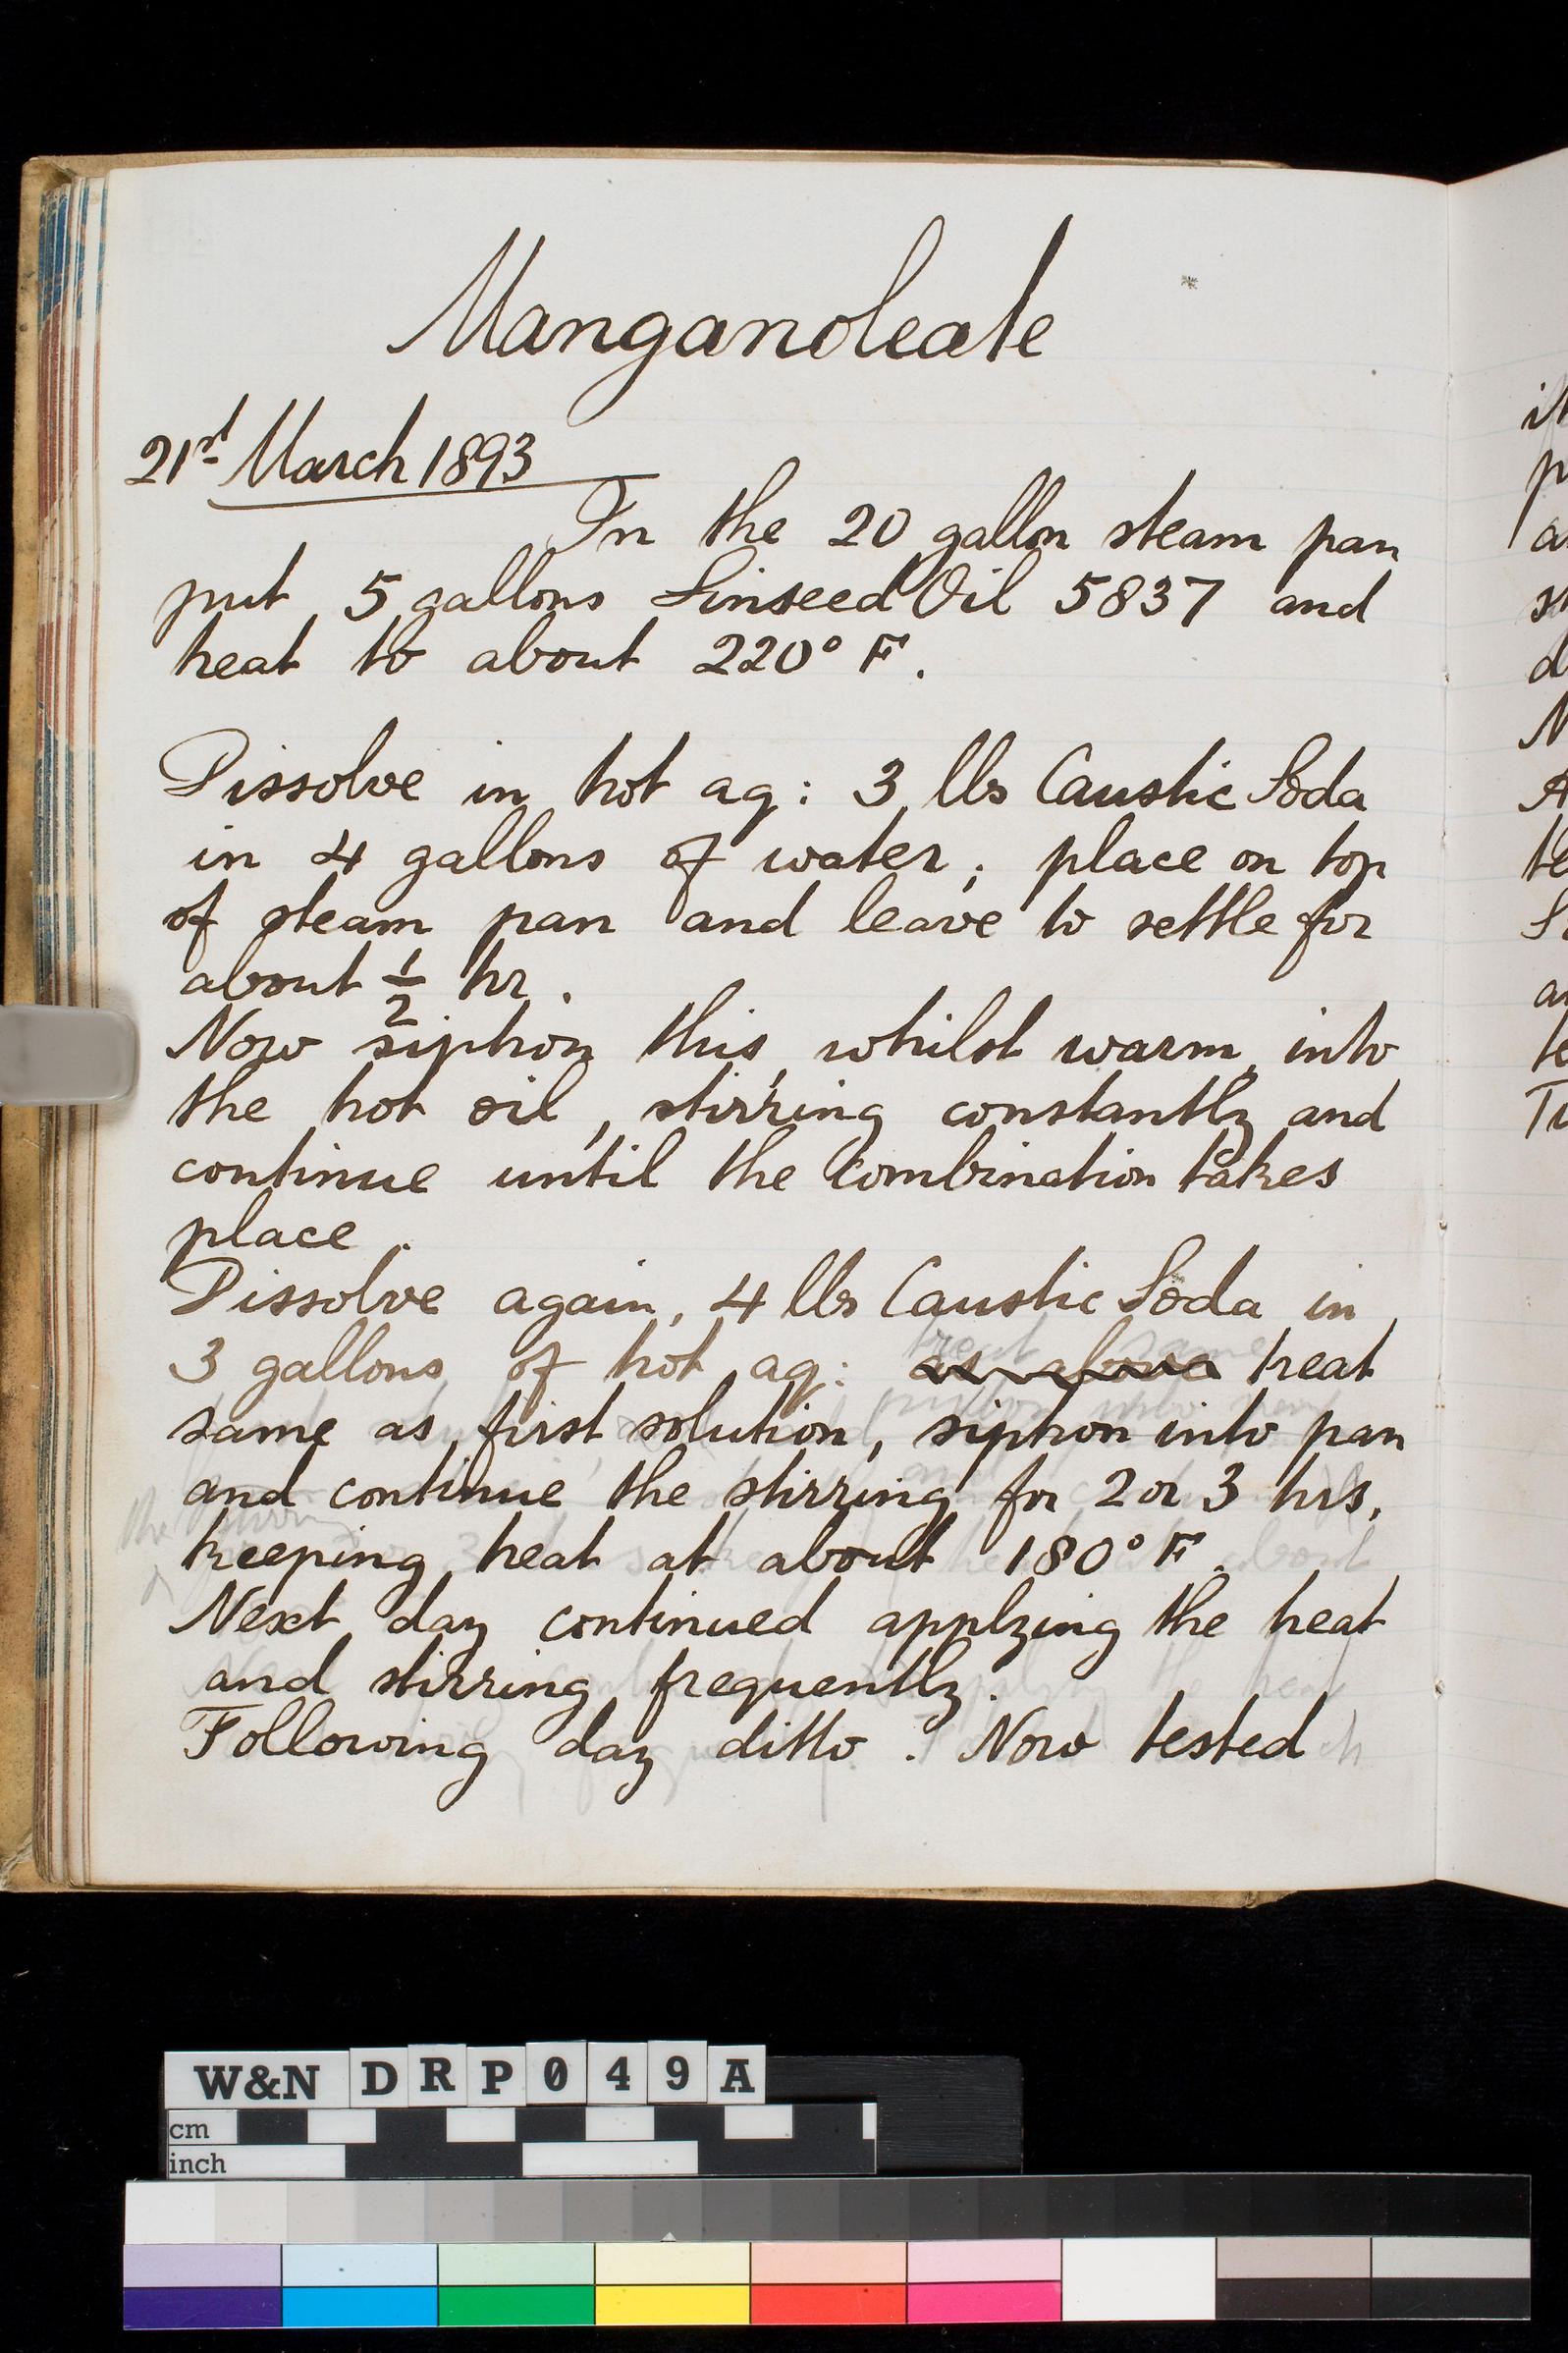 Manganoleate
21st March 1893
In the 20 gallon steam pan
put 5 gallons Linseed Oil 5837 and
heat to about 220° F.
Dissolve in hot aq: 3 lbs Caustic Soda
in 4 gallons of water; place on top
of steam pan and leave to settle for
about 1/2 hr.
Now siphon this, whilst warm, into
the hot oil, stirring constantly and
continue until the combination takes
place.
Dissolve again, 4 lbs Caustic Soda in
3 gallons of hot aq: as above treat
same as first solution, siphon into pan
and continue the stirring for 2 or 3 hrs,
keeping heat at about 180° F.
Next day continued applying the heat
and stirring frequently.
Following day ditto. Now tested
W&N DRP049A
cm
inch